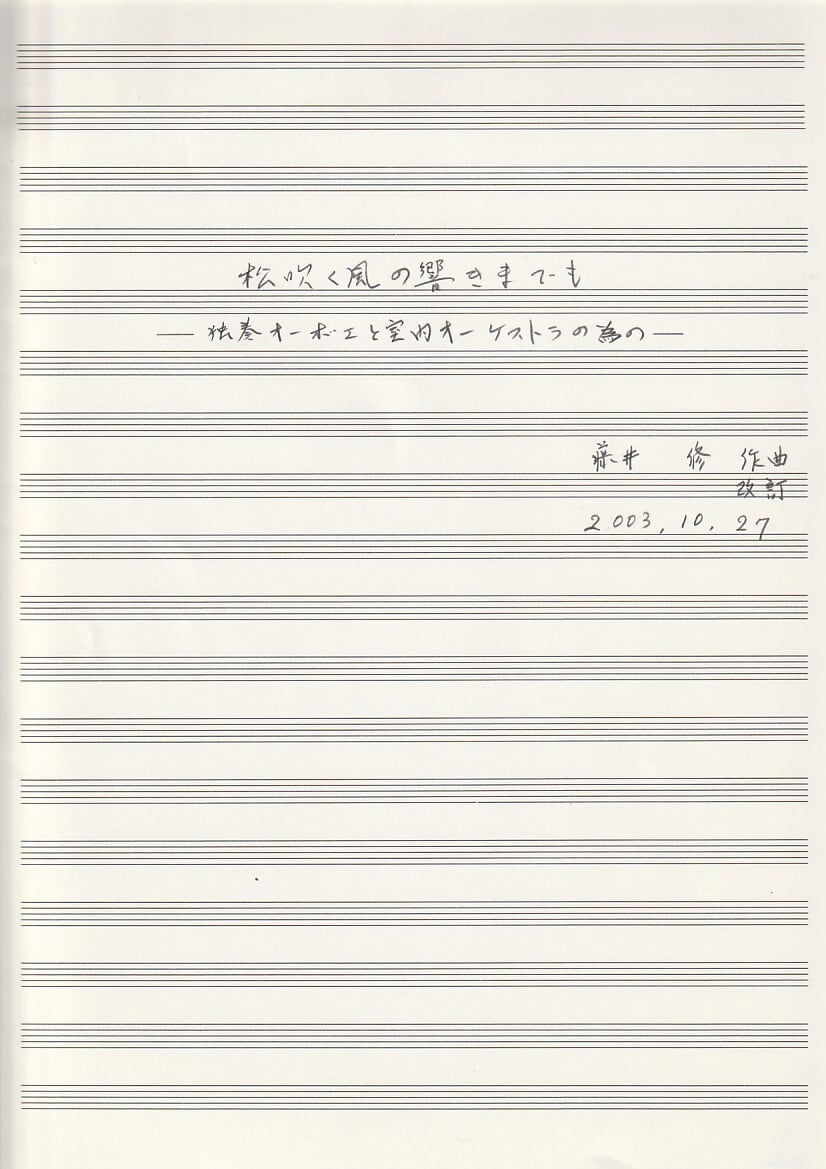 松吹く風の響きまでも
― 独奏オーボエと室内オーケストラの為の ―
藤井 修 作曲
改訂
2003, 10, 27